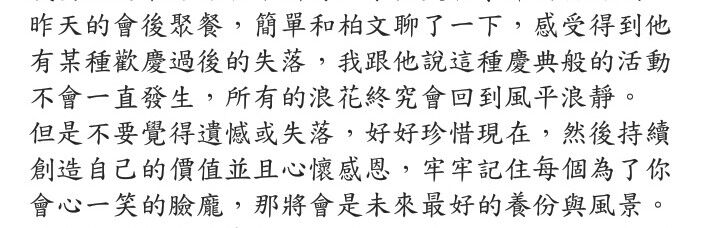 昨天的會後聚餐，簡單和柏文聊了一下，感受得到他
有某種歡慶過後的失落，我跟他說這種慶典般的活動
不會一直發生，所有的浪花終究會回到風平浪靜。
但是不要覺得遺憾或失落，好好珍惜現在，然後持續
創造自己的價值並且心懷感恩，牢牢記住每個為了你
會心一笑的臉龐，那將會是未來最好的養份與風景。